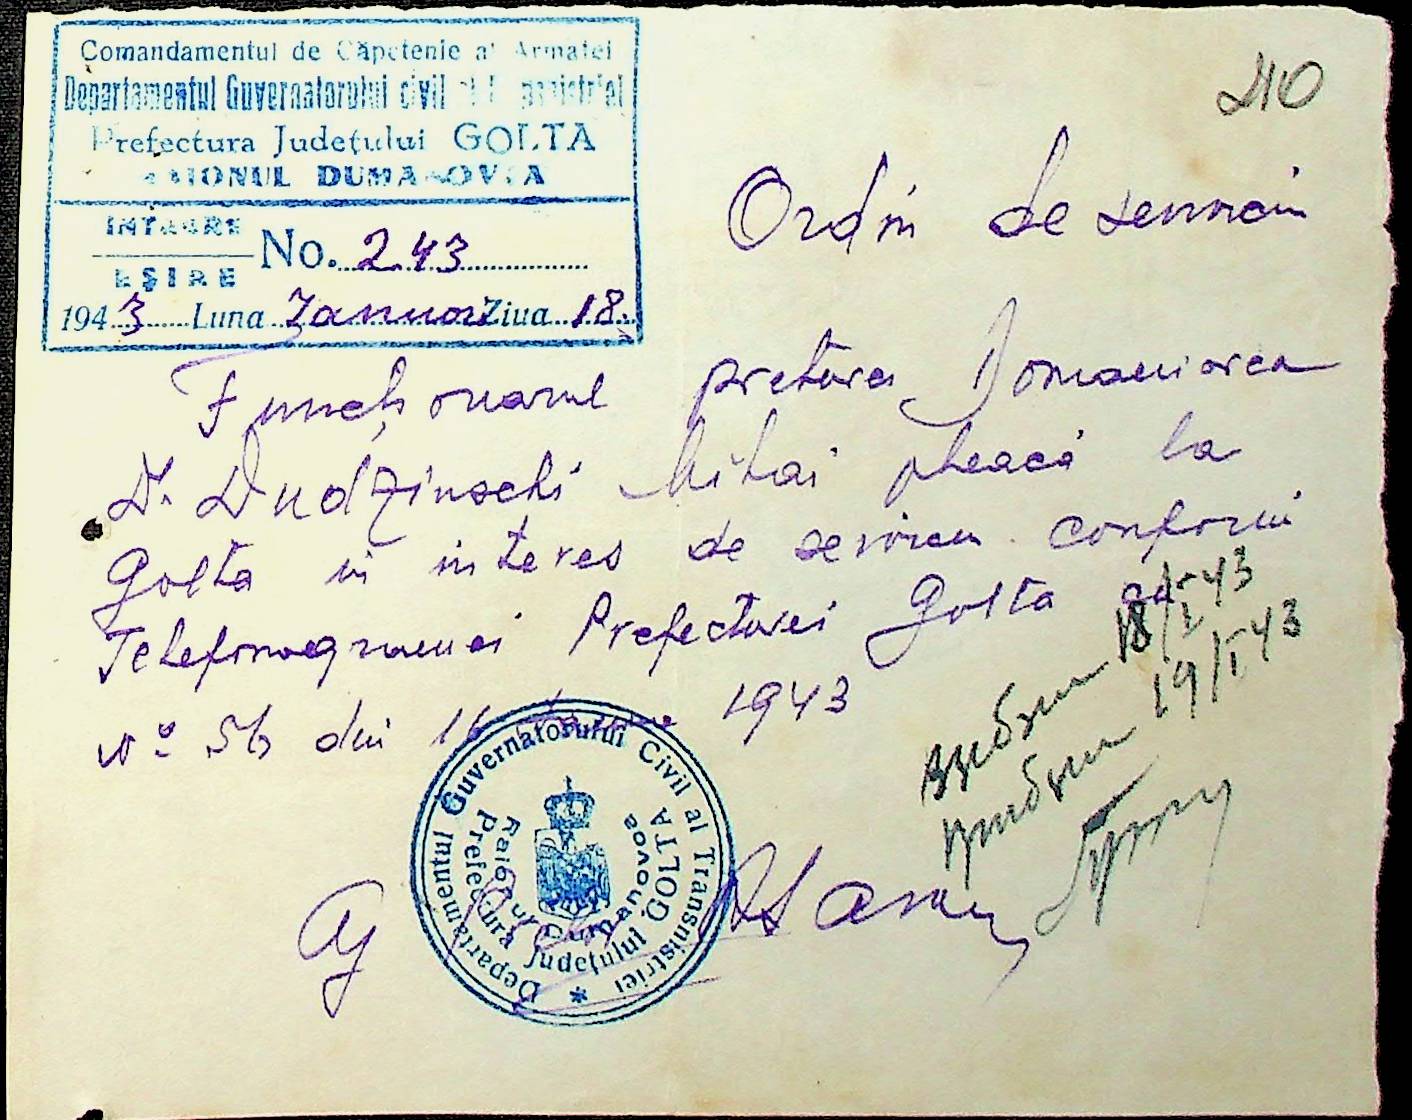 Comandamentul de Căpetenie al Armatei
Departamentul Guvernatorului civil al Transnistriei
Prefectura Județului GOLTA
RAIONUL DUMANOVCA
INTRARE
EȘIRE
No. 243
1943 Luna Januar Ziua 18.
210
Ordin de serviciu
Funcționarul preturei Domaniovca
Dl. Dudzinschi Mihai pleacă la
Golta in interes de serviciu conform
Telefonogramei Prefecturei Golta
No 56 din 16 1943
Departamentul Guvernatorului Civil al Transnistriei
Prefectura Județului GOLTA
Raionul Dumanovca
18/I 43
19/I 43